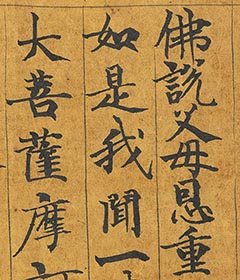 佛說父母恩重
如是我聞一
大菩薩摩